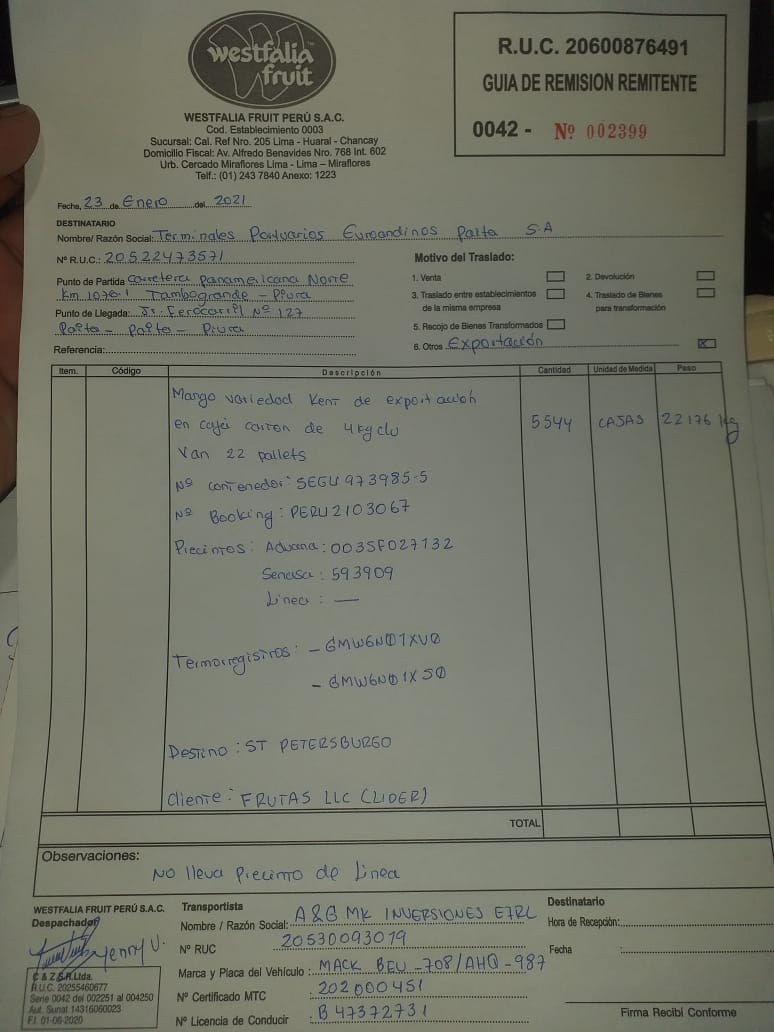 westfalia
fruit
WESTFALIA FRUIT PERÚ S.A.C.
Cod. Establecimiento 0003
Sucursal: Cal. Ref Nro. 205 Lima - Huaral - Chancay
Domicilio Fiscal: Av. Alfredo Benavides Nro. 768 Int. 602
Urb. Cercado Miraflores Lima - Lima – Miraflores
Telf.: (01) 243 7840 Anexo: 1223
R.U.C. 20600876491
GUIA DE REMISION REMITENTE
0042 - Nº 002399
Fecha, 23 de Enero del 2021
DESTINATARIO
Nombre/ Razón Social: Terminales Portuarios Euroandinos Paita S.A
Nº R.U.C.: 20522473571
Punto de Partida Carretera Panamericana Norte
Km 1076.1 Tambogrande - Piura
Punto de Llegada: Jr. Ferocarril Nº 127
Paita - Paita - Piura
Referencia:
Motivo del Traslado:
1. Venta
2. Devolución
3. Traslado entre establecimientos
de la misma empresa
4. Traslado de Bienes
para transformación
5. Recojo de Bienes Transformados
6. Otros Exportación X
Item. Código Descripción Cantidad Unidad de Medida Peso
Mango variedad Kent de exportación
en caja carton de 4kg clu 5544 CAJAS 22176 kg
Van 22 pallets
Nº contenedor: SEGU 973985-5
Nº Booking: PERU2103067
Precintos: Aduana: 003SF027132
Senasa: 593909
Linea: —
Termorregistros: - GMW6N01XV0
- GMW6N01X50
Destino: ST PETERSBURGO
Cliente: FRUTAS LLC (LIDER)
TOTAL
Observaciones:
No lleva Precinto de Linea
WESTFALIA FRUIT PERÚ S.A.C.
Despachador
Yenny V.
C & Z S.R.Ltda.
R.U.C. 20255460677
Serie 0042 del 002251 al 004250
Aut. Sunat 14316060023
F.I. 01-06-2020
Transportista
Nombre / Razón Social: A&G MK INVERSIONES EIRL
Nº RUC 20530093019
Marca y Placa del Vehículo: MACK BEU-708/AHQ-987
Nº Certificado MTC 202000451
Nº Licencia de Conducir B47372731
Destinatario
Hora de Recepción:
Fecha :
Firma Recibí Conforme